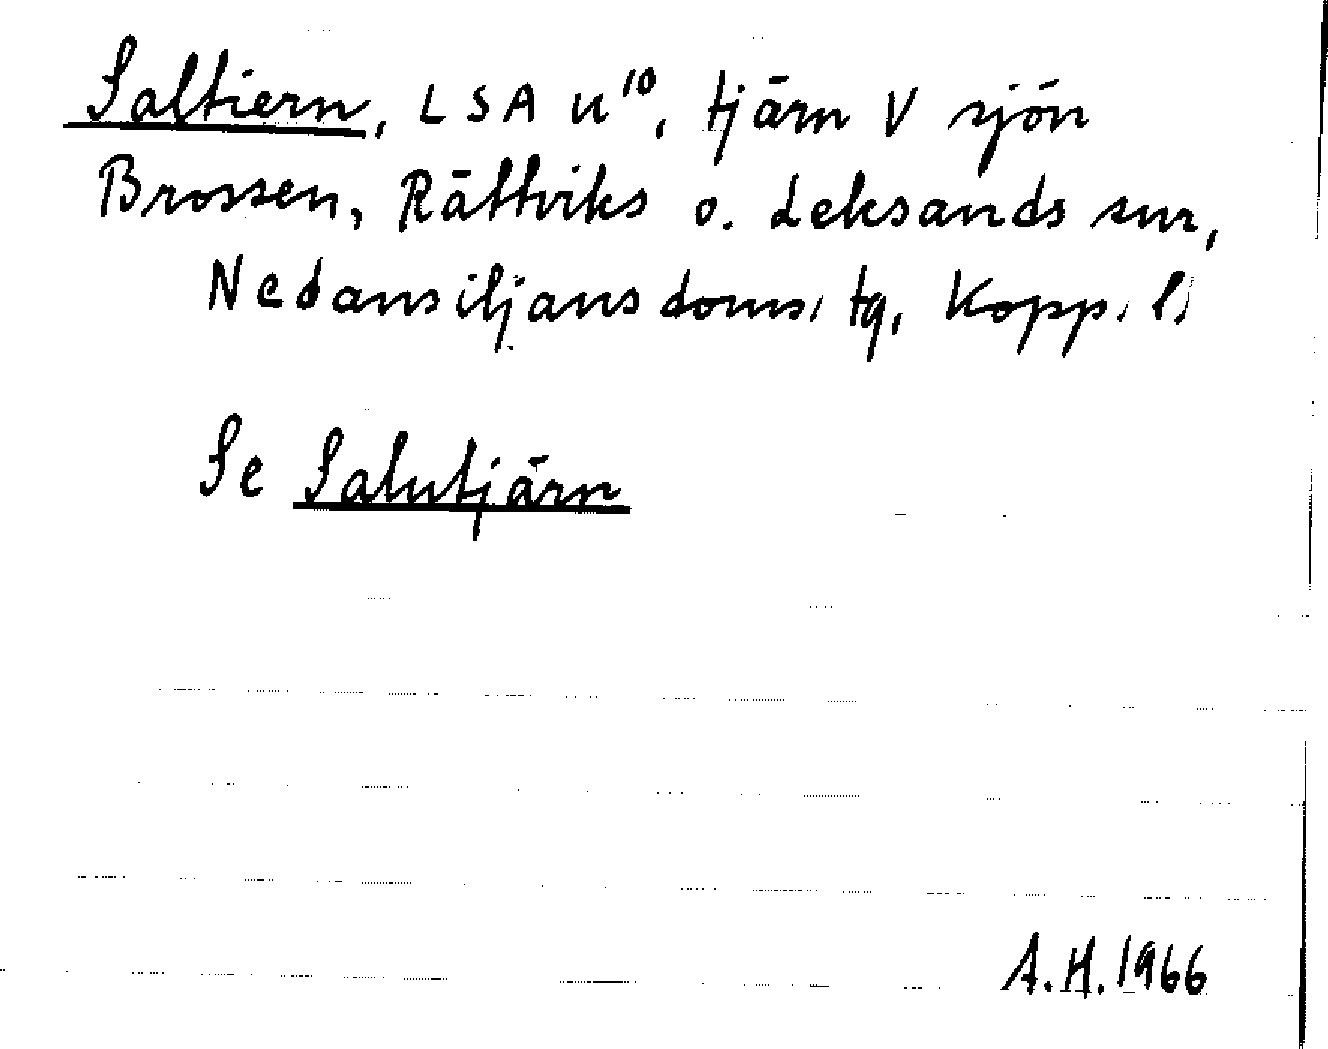 Saltiern, LSA u¹⁰, tjärn V sjön
Brossen, Rättviks o. Leksands snr,
Nedansiljans doms. tg, Kopp. l.
Se Salutjärn
A.H. 1966